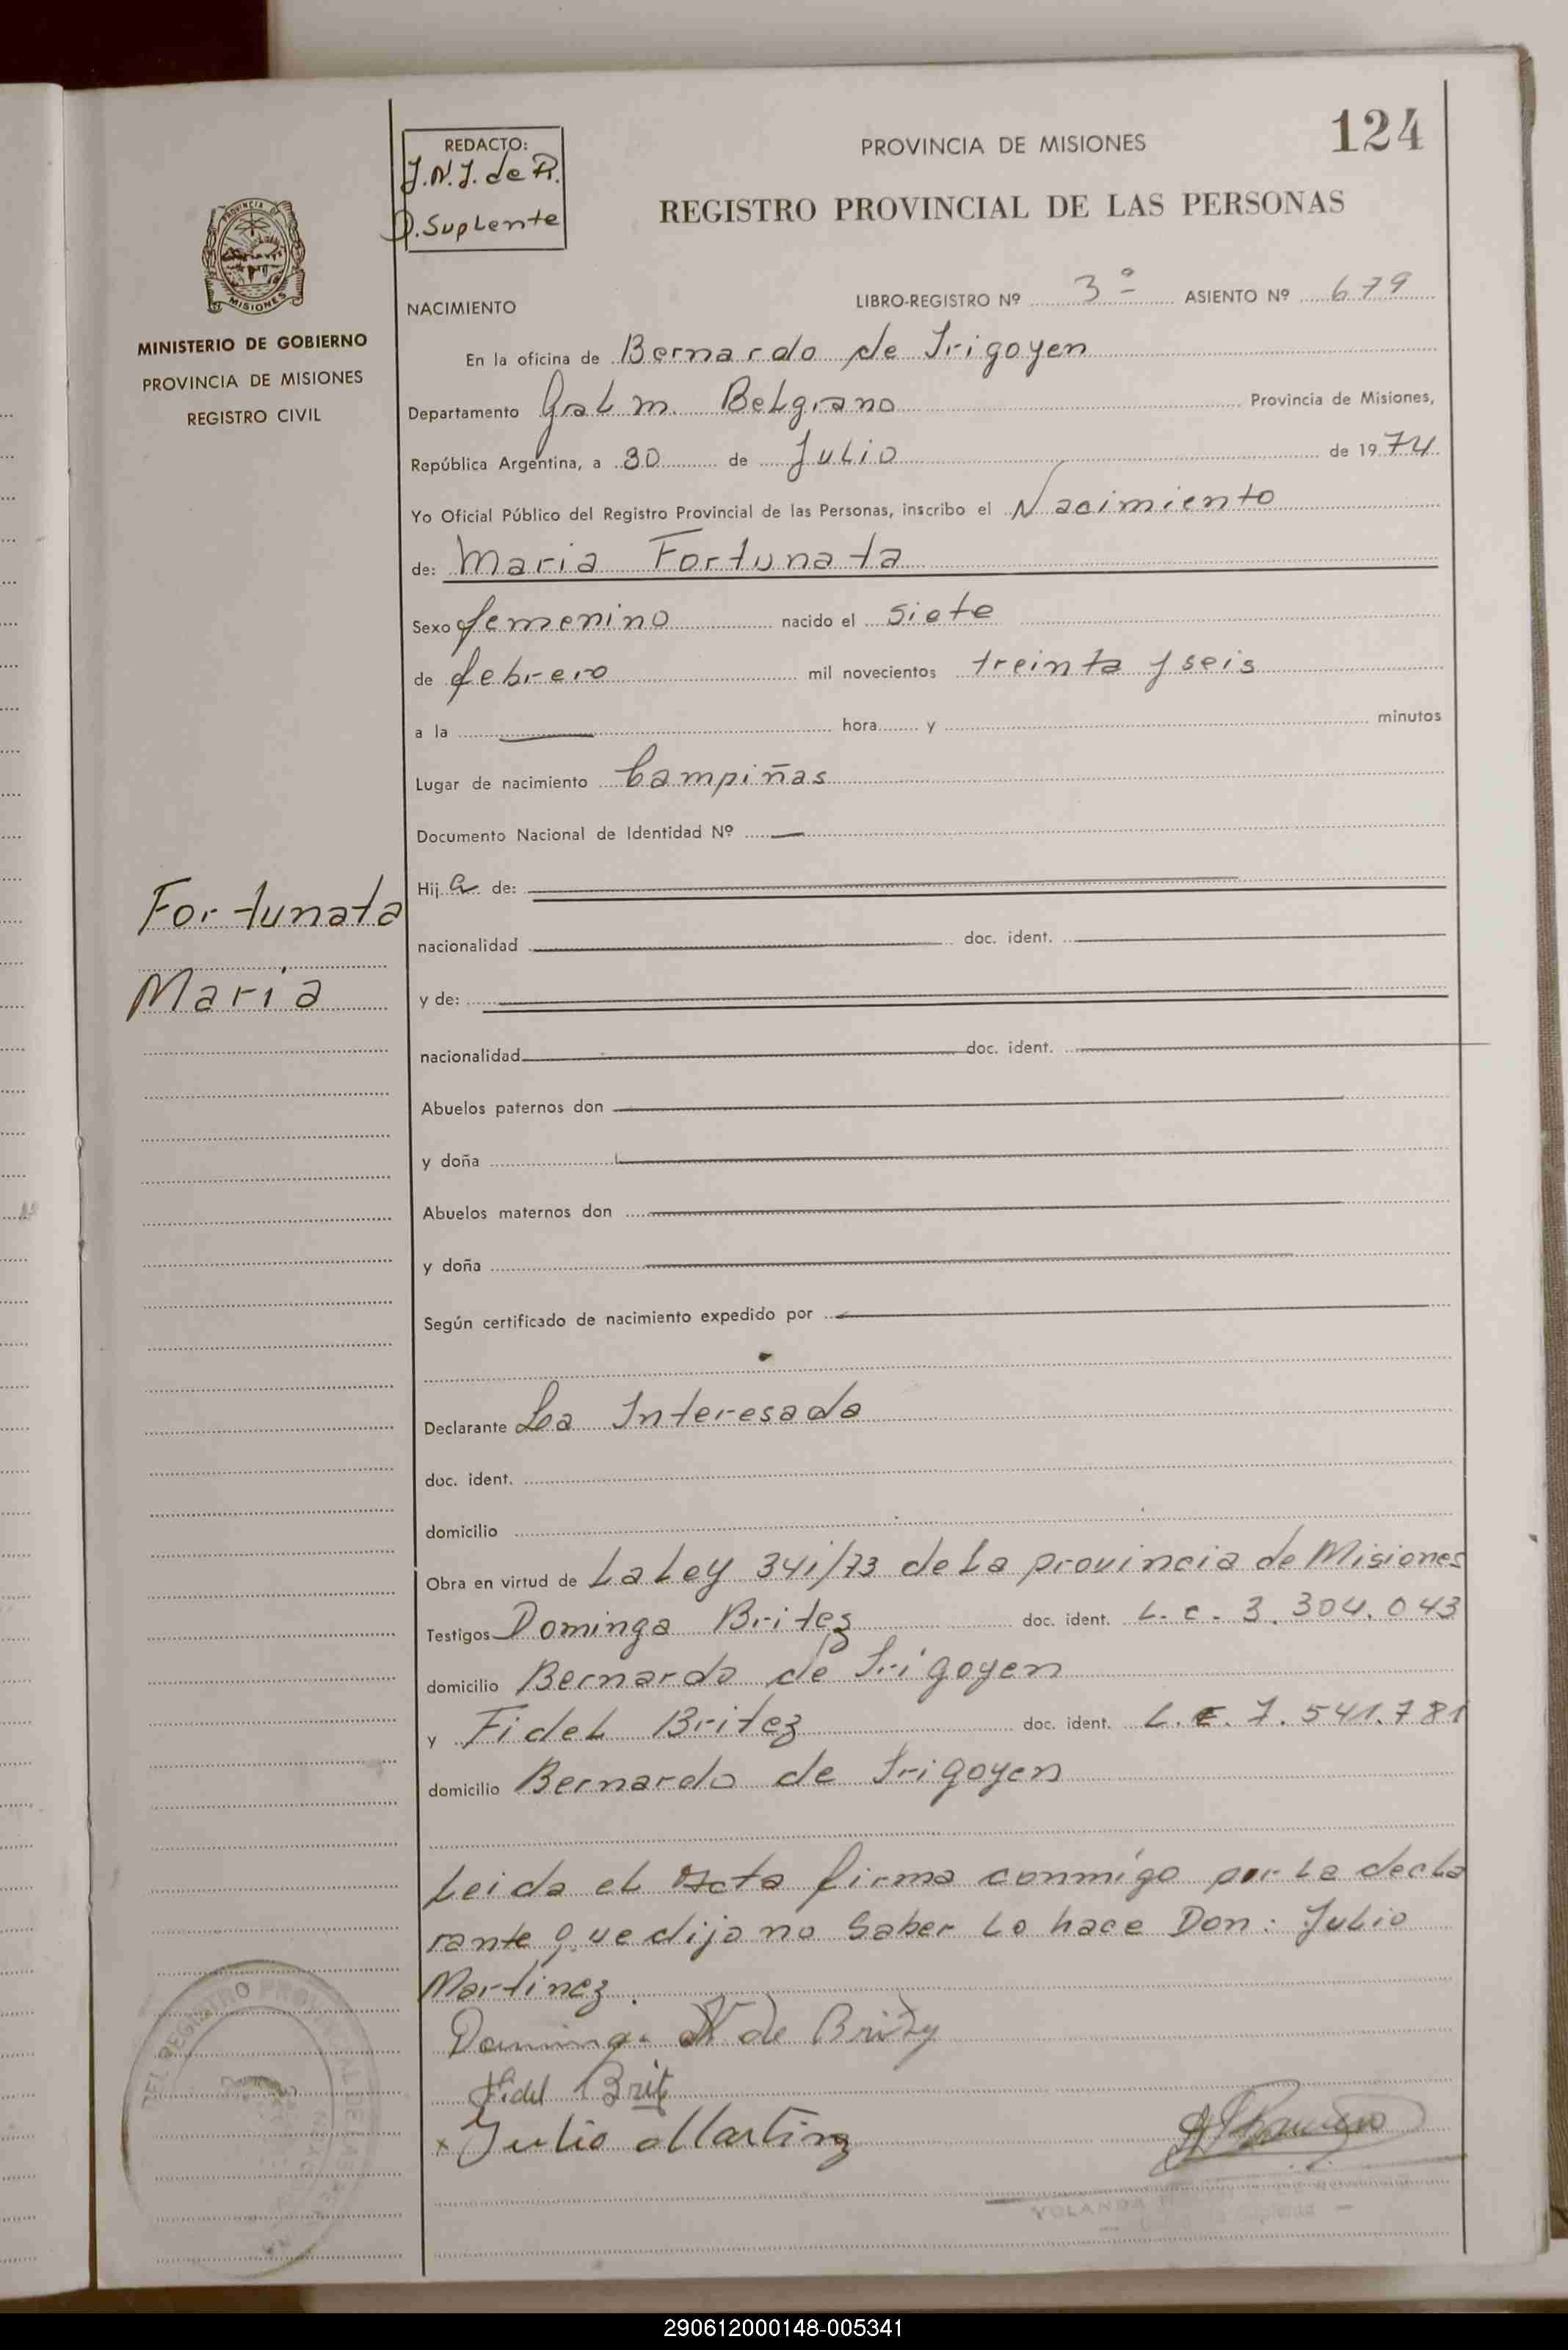 124
REDACTO:
J.N.J. de R.
O. Suplente
PROVINCIA DE MISIONES
REGISTRO PROVINCIAL DE LAS PERSONAS
PROVINCIA DE
MISIONES
MINISTERIO DE GOBIERNO
PROVINCIA DE MISIONES
REGISTRO CIVIL
NACIMIENTO LIBRO-REGISTRO Nº 3º ASIENTO Nº 679
En la oficina de Bernardo de Irigoyen
Departamento Gral m. Belgrano Provincia de Misiones,
República Argentina, a 30 de Julio de 1974.
Yo Oficial Público del Registro Provincial de las Personas, inscribo el Nacimiento
de: Maria Fortunata
Sexo femenino nacido el siete
de febrero mil novecientos treinta y seis
a la hora y minutos
Lugar de nacimiento Campiñas
Documento Nacional de Identidad Nº
Fortunata
Maria
Hija de:
nacionalidad doc. ident.
y de:
nacionalidad doc. ident.
Abuelos paternos don
y doña
Abuelos maternos don
y doña
Según certificado de nacimiento expedido por
Declarante La Interesada
doc. ident.
domicilio
Obra en virtud de La Ley 341/73 de la provincia de Misiones
Testigos Dominga Britez doc. ident. L.C. 3.304.043
domicilio Bernardo de Irigoyen
y Fidel Britez doc. ident. L.E. 7.541.781
domicilio Bernardo de Irigoyen
Leida el acta firma conmigo por la decla
rante que dijo no saber lo hace Don: Julio
Martinez.
Dominga de Britez
Fidel Brit
x Julio Martinez
DEL REGISTRO PROVINCIAL DE LAS
YOLANDA
290612000148-005341